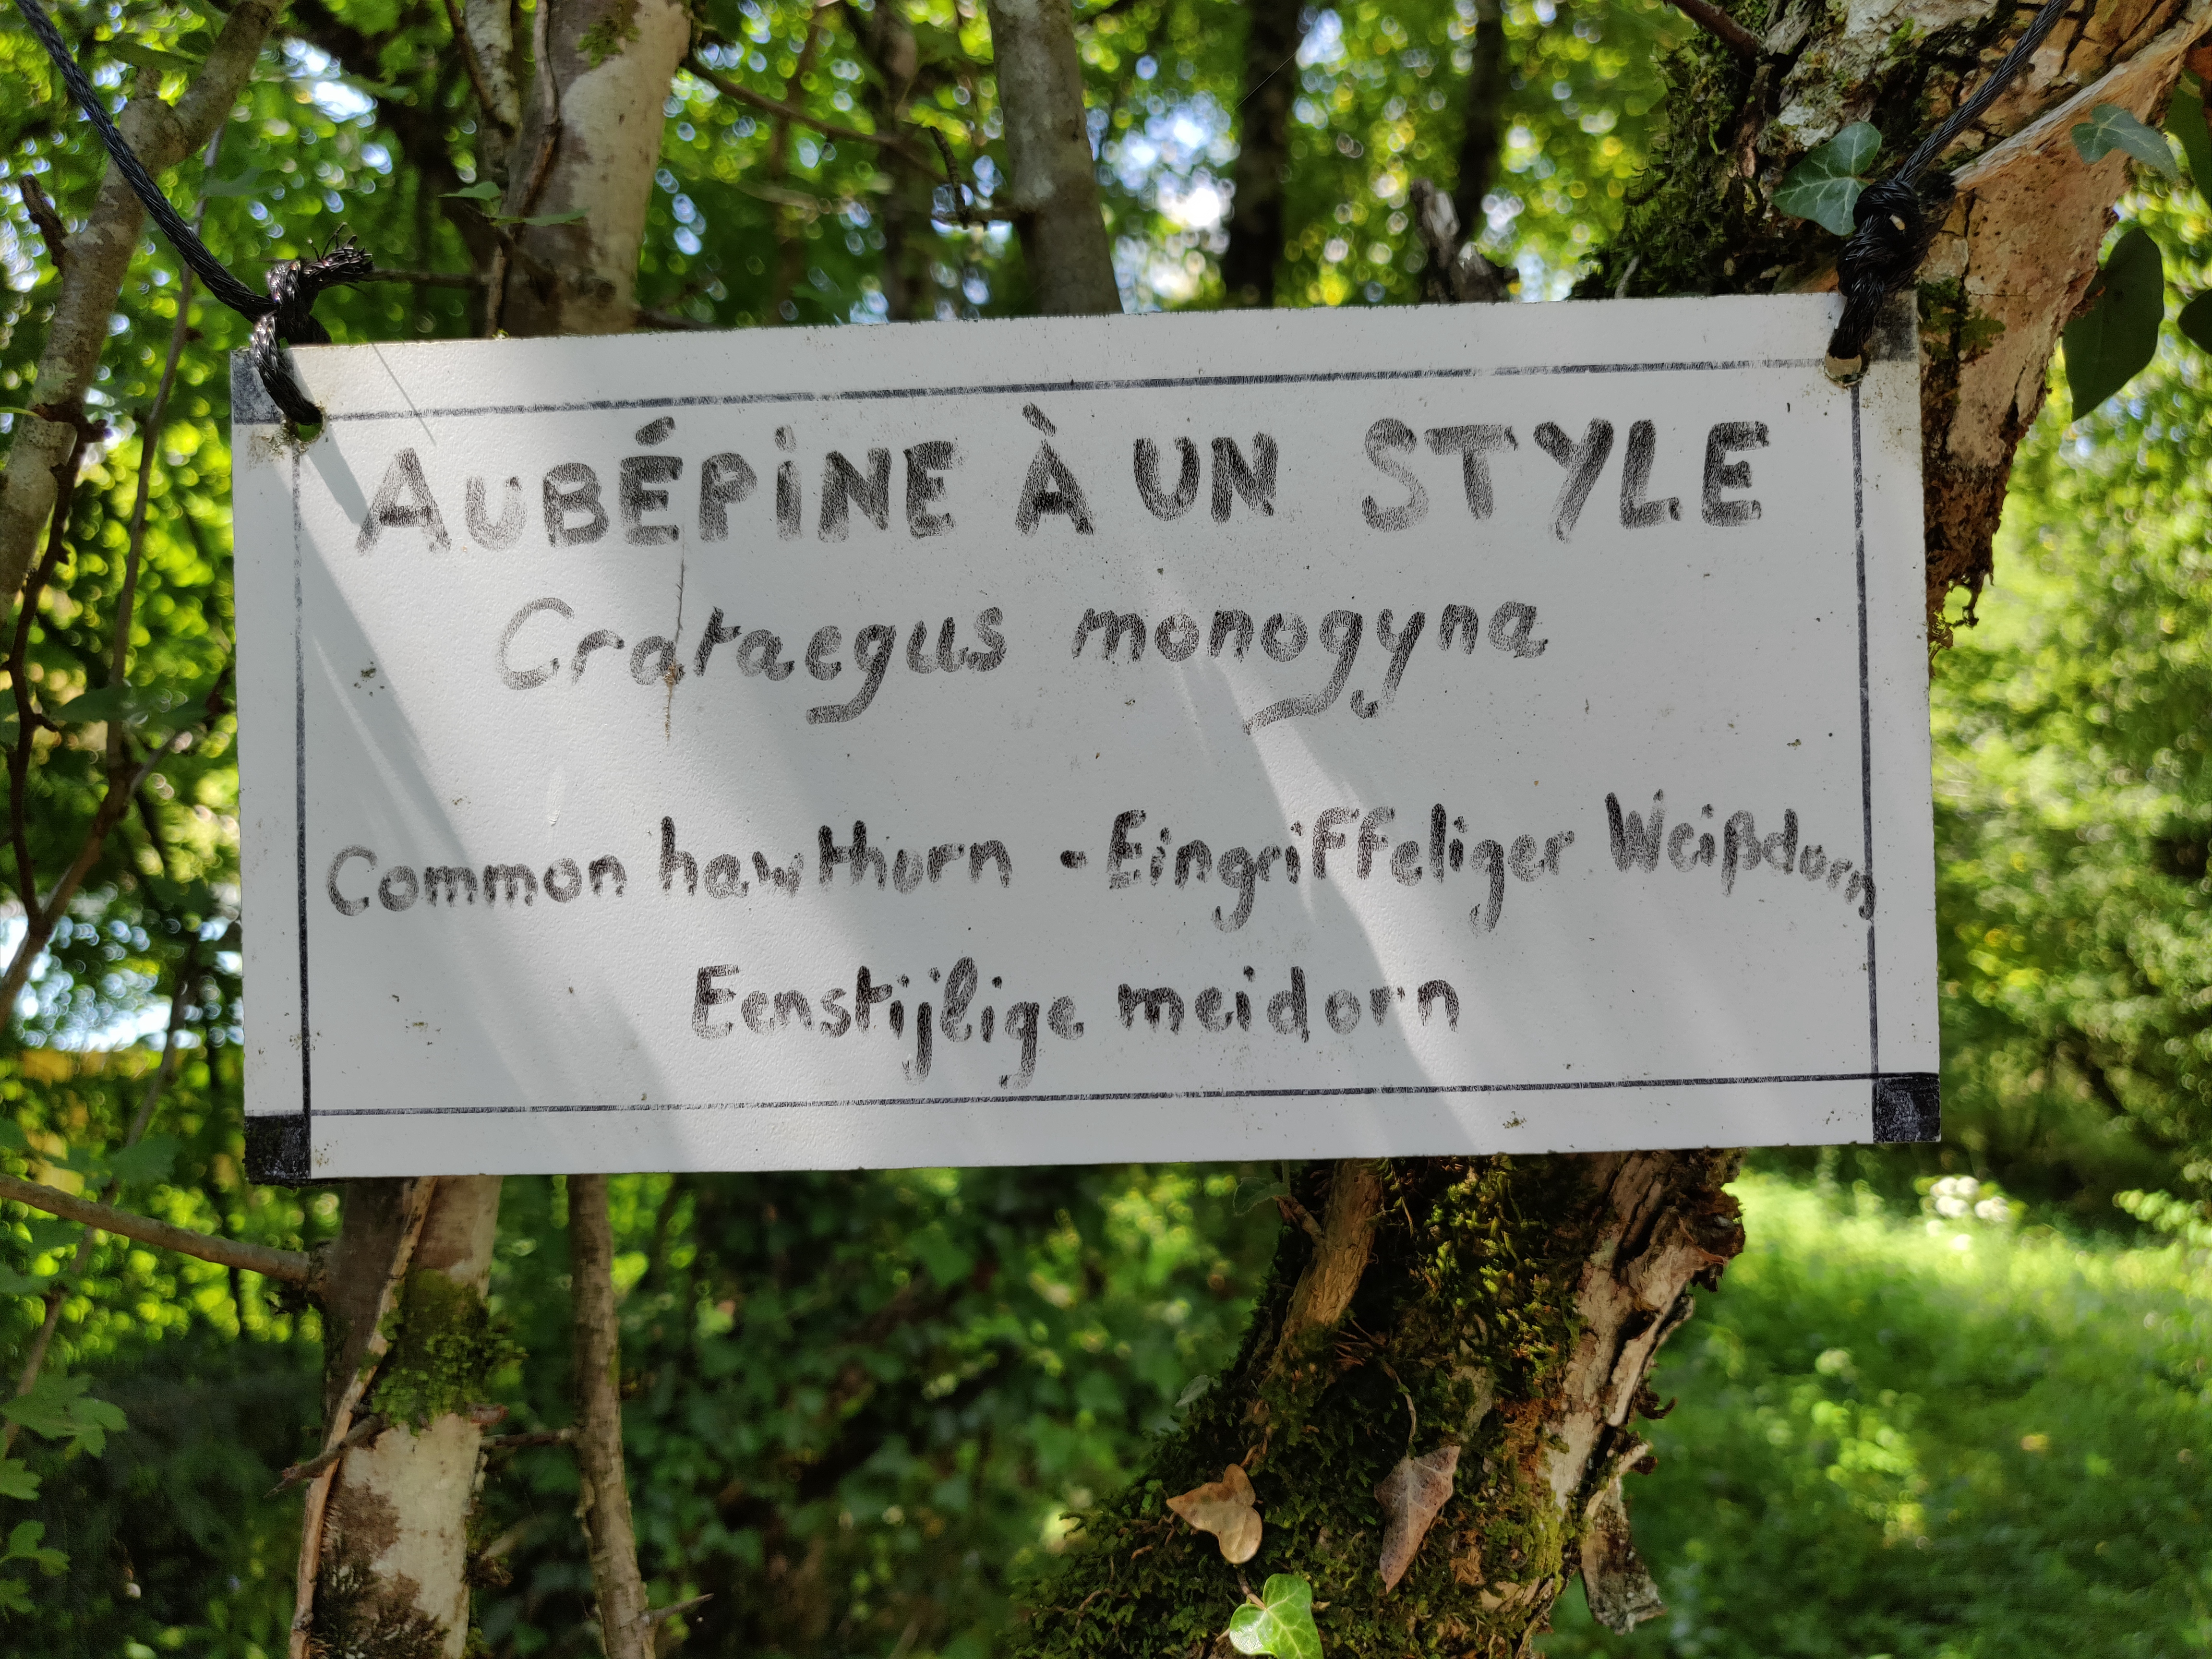 AUBÉPINE À UN STYLE
Crataegus monogyna
Common hawthorn - Eingriffeliger Weißdorn
Eenstijlige meidorn